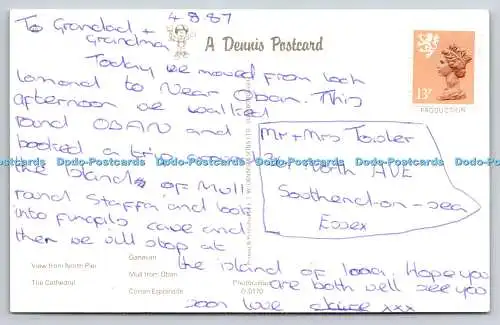 4 8 87
To Grandad +
Grandma
A Dennis Postcard
Today we moved from Loch
Lomond to Near Oban. This
afternoon we walked
round OBAN and
booked a trip
the Islands of Mull
round Staffa and look
into fingils cave and
then we will stop at
the island of Iona. Hope you
are both well see you
soon love Claire xxx
Mr + Mrs
North AVE
Southend-on-sea
Essex
13P
View from North Pier
Ganavan
The Cathedral
Mull from Oban
Corran Esplanade
O.0170
Dodo-Postcards Dodo-Postcards Dodo-Postcards Dodo-Postcards Dodo-Postcards Dodo-Postcards